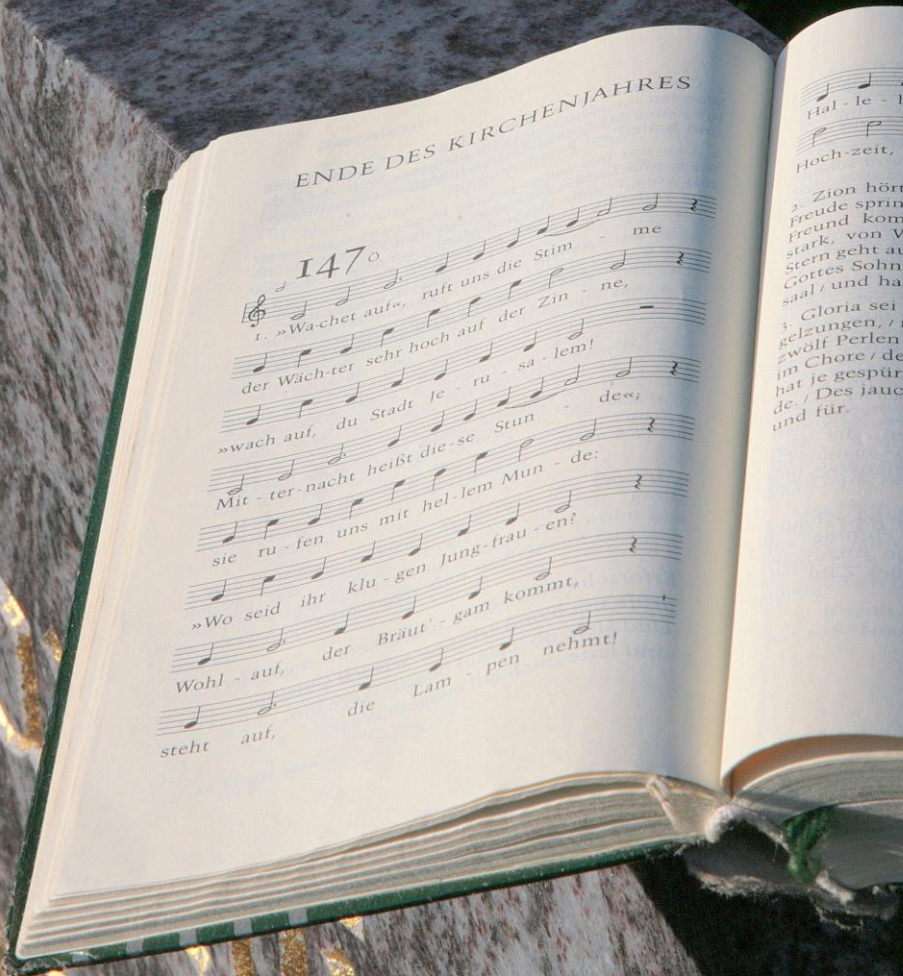 ENDE DES KIRCHENJAHRES
147
1. »Wa-chet auf«, ruft uns die Stim - me
der Wäch-ter sehr hoch auf der Zin - ne,
»wach auf, du Stadt Je - ru - sa - lem!
Mit - ter-nacht heißt die-se Stun - de«;
sie ru - fen uns mit hel-lem Mun - de:
»Wo seid ihr klu - gen Jung-frau - en?
Wohl - auf, der Bräut' - gam kommt,
steht auf, die Lam - pen nehmt!
Hal - le -
Hoch-zeit,
2. Zion hört
Freude sprin
Freund kom
stark, von
Stern geht au
Gottes Sohn
saal / und ha
3. Gloria sei
gelzungen, /
zwölf Perlen
im Chore / de
hat je gespür
de. / Des jauc
und für.